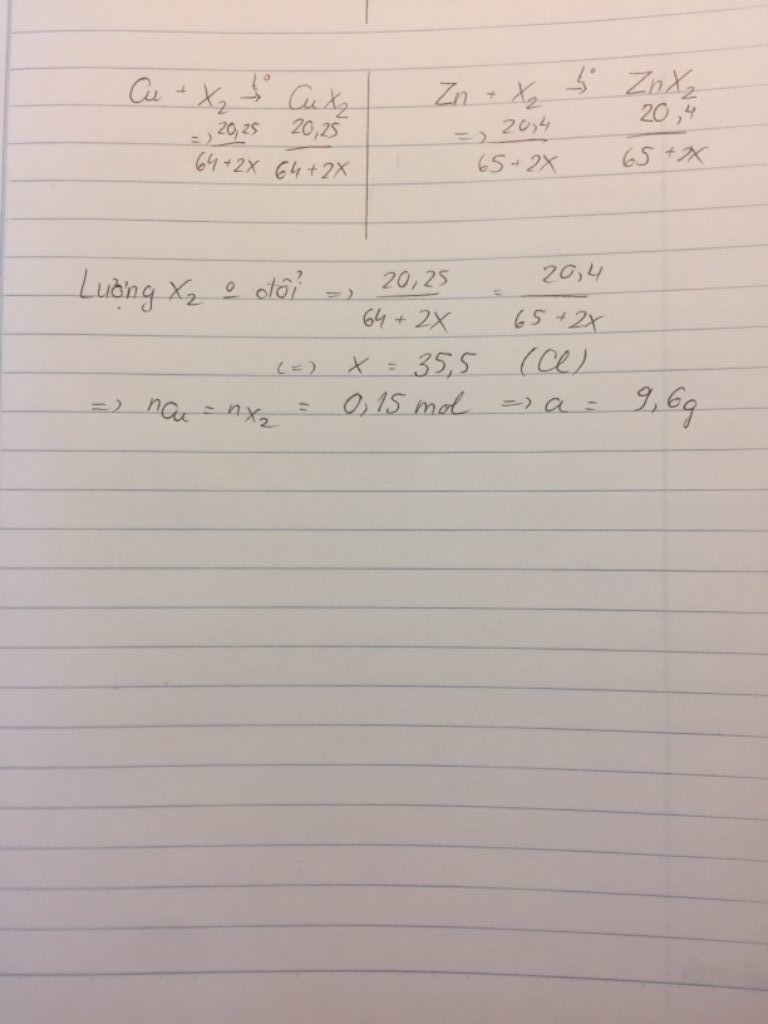 Cu + X₂ →t° CuX₂
=> 20,25/(64+2X) 20,25/(64+2X)
Zn + X₂ →t° ZnX₂
=> 20,4/(65+2X) 20,4/(65+2X)
Lượng X₂ o đổi => 20,25/(64+2X) = 20,4/(65+2X)
(=) X = 35,5 (Cl)
=> nCu = nX₂ = 0,15 mol => a = 9,6g